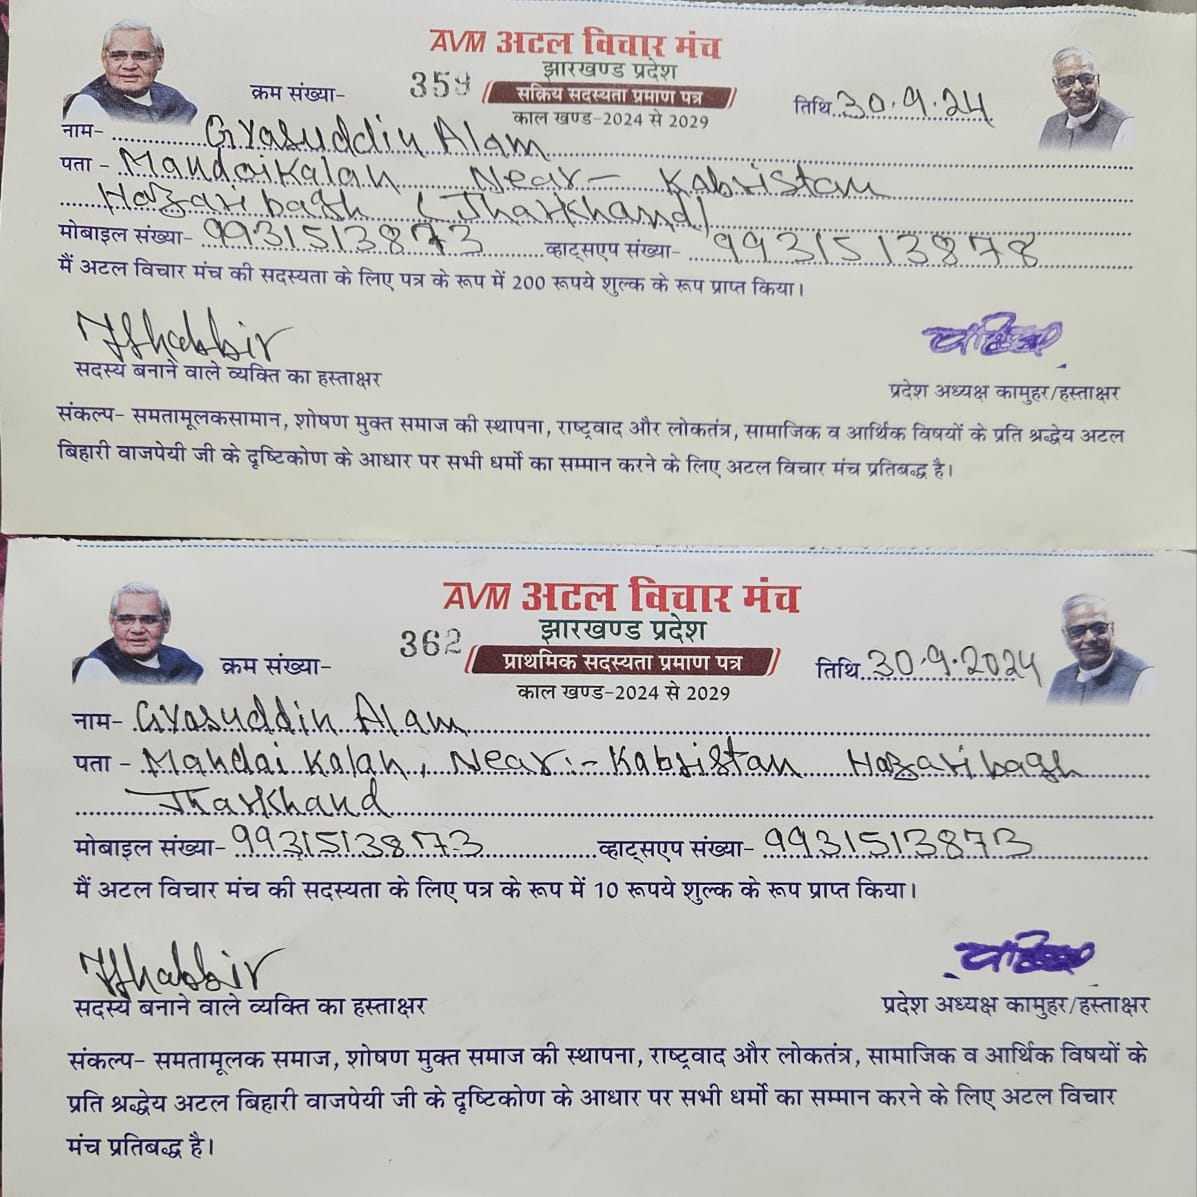 AVM अटल विचार मंच
झारखण्ड प्रदेश
क्रम संख्या- 359 सक्रिय सदस्यता प्रमाण पत्र तिथि 30.9.24
काल खण्ड-2024 से 2029
नाम- Gyasuddin Alam
पता - Mandaikalan Near- Kabristan
Hazaribagh (Jharkhand)
मोबाइल संख्या- 9931513873 व्हाट्सएप संख्या- 9931513878
मैं अटल विचार मंच की सदस्यता के लिए पत्र के रूप में 200 रूपये शुल्क के रूप प्राप्त किया।
सदस्य बनाने वाले व्यक्ति का हस्ताक्षर
प्रदेश अध्यक्ष कामुहर/हस्ताक्षर
संकल्प- समतामूलकसामान, शोषण मुक्त समाज की स्थापना, राष्ट्रवाद और लोकतंत्र, सामाजिक व आर्थिक विषयों के प्रति श्रद्धेय अटल
बिहारी वाजपेयी जी के दृष्टिकोण के आधार पर सभी धर्मो का सम्मान करने के लिए अटल विचार मंच प्रतिबद्ध है।
AVM अटल विचार मंच
झारखण्ड प्रदेश
क्रम संख्या- 362 प्राथमिक सदस्यता प्रमाण पत्र तिथि 30.9.2024
काल खण्ड-2024 से 2029
नाम- Gyasuddin Alam
पता - Mandai Kalan, Near:- Kabristan Hazaribagh
Jharkhand
मोबाइल संख्या- 9931513873 व्हाट्सएप संख्या- 9931513873
मैं अटल विचार मंच की सदस्यता के लिए पत्र के रूप में 10 रूपये शुल्क के रूप प्राप्त किया।
सदस्य बनाने वाले व्यक्ति का हस्ताक्षर
प्रदेश अध्यक्ष कामुहर/हस्ताक्षर
संकल्प- समतामूलक समाज, शोषण मुक्त समाज की स्थापना, राष्ट्रवाद और लोकतंत्र, सामाजिक व आर्थिक विषयों के
प्रति श्रद्धेय अटल बिहारी वाजपेयी जी के दृष्टिकोण के आधार पर सभी धर्मो का सम्मान करने के लिए अटल विचार
मंच प्रतिबद्ध है।